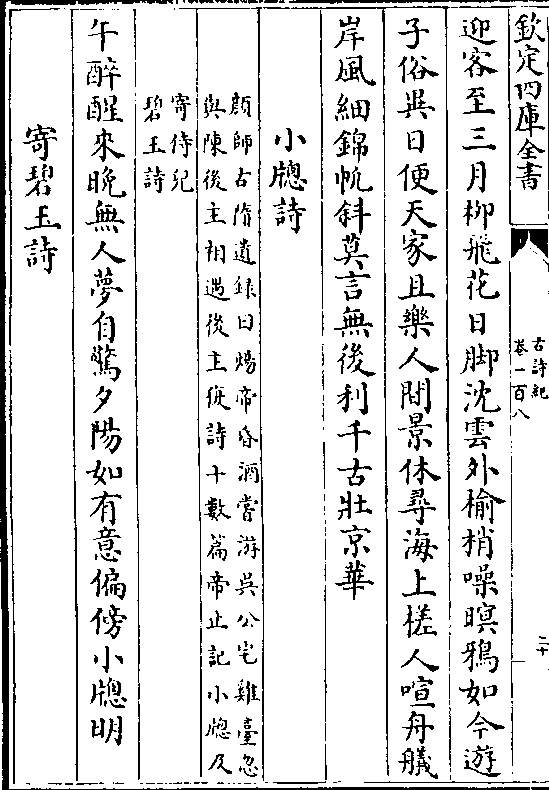 欽定四庫全書
古詩紀
卷一百八
二十
迎客至三月柳飛花日脚沈雲外榆梢噪暝鴉如今遊
子俗異日便天家且樂人間景休尋海上槎人喧舟艤
岸風細錦帆斜莫言無後利千古壯京華
小牕詩
顔師古隋遺録曰煬帝昏酒嘗游吴公宅雞臺忽
與陳後主相遇後主從詩十數篇帝止記小牕及
寄侍兒
碧玉詩
午醉醒來晚無人夢自驚夕陽如有意偏傍小牕明
寄碧玉詩